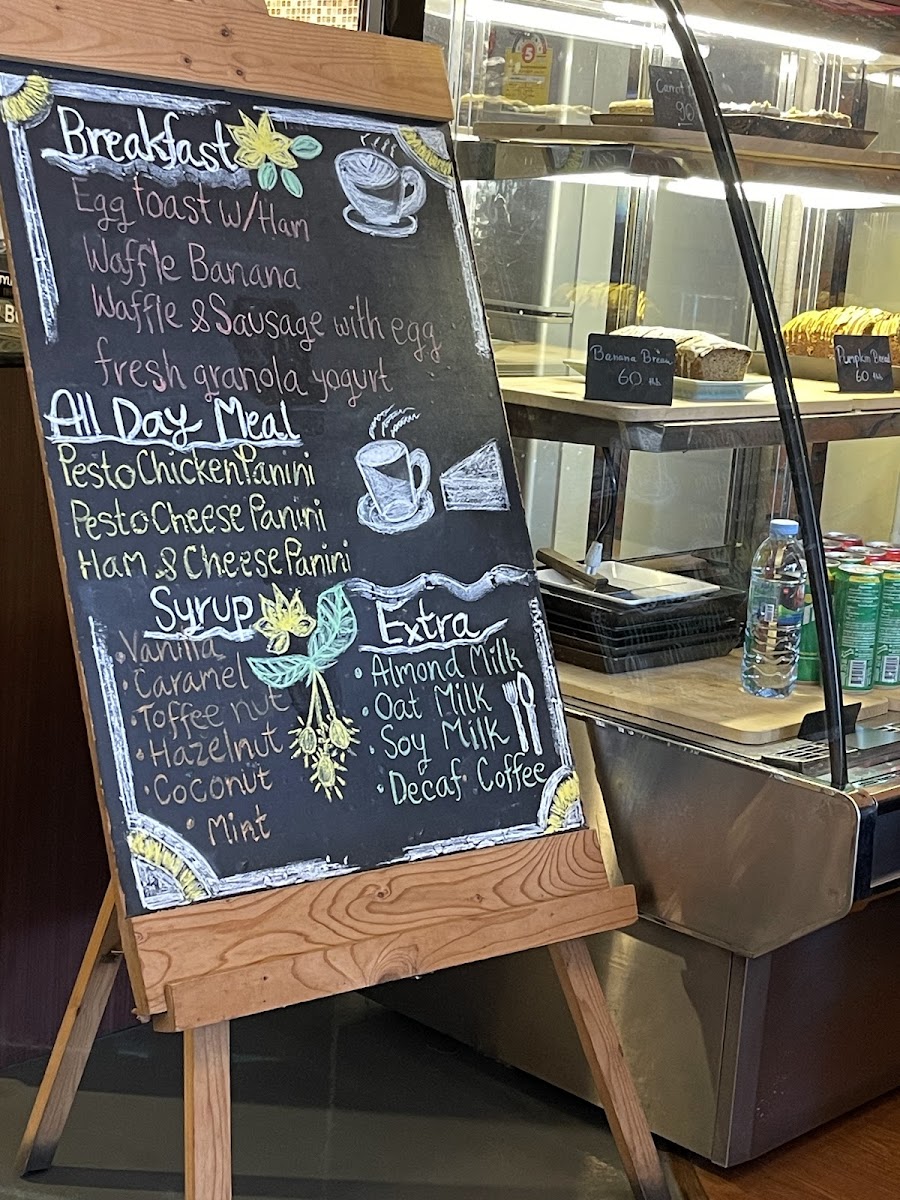 Breakfast
Egg toast w/Ham
Waffle Banana
Waffle & Sausage with egg
fresh granola yogurt
All Day Meal
Pesto Chicken Panini
Pesto Cheese Panini
Ham & Cheese Panini
Syrup
• Vanilla
• Caramel
• Toffee nut
• Hazelnut
• Coconut
• Mint
Extra
• Almond Milk
• Oat Milk
• Soy Milk
• Decaf Coffee
Carrot
90
5
Banana Bread
60 thb
Pumpkin Bread
60 thb